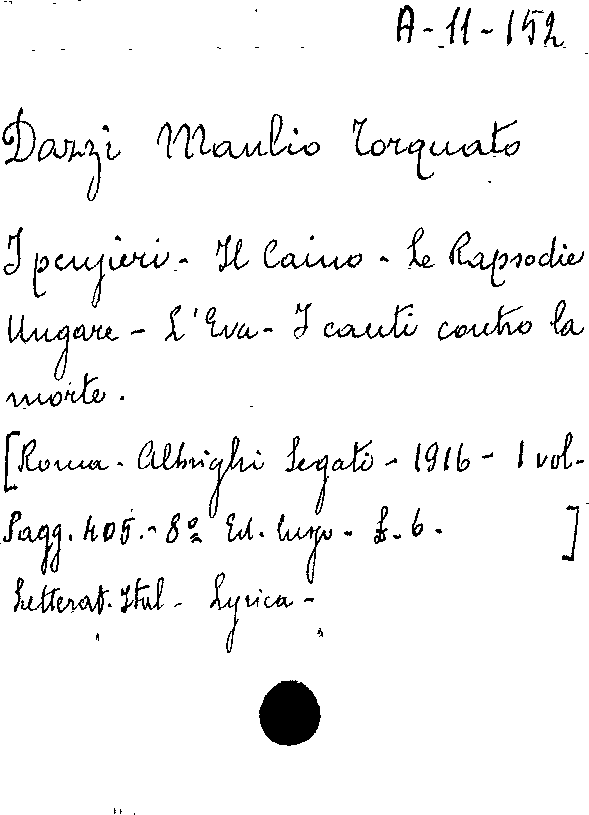 A-11-152
Dazzi Manlio Torquato
I pensieri - Il Caino - Le Rapsodie
Ungare - L'Eva - I canti contro la
morte.
[Roma - Albrighi Segati - 1916 - 1 vol-
Pagg. 405. - 8º Ed. lusso - £. 6. - ]
Letterat. Ital - Lyrica -